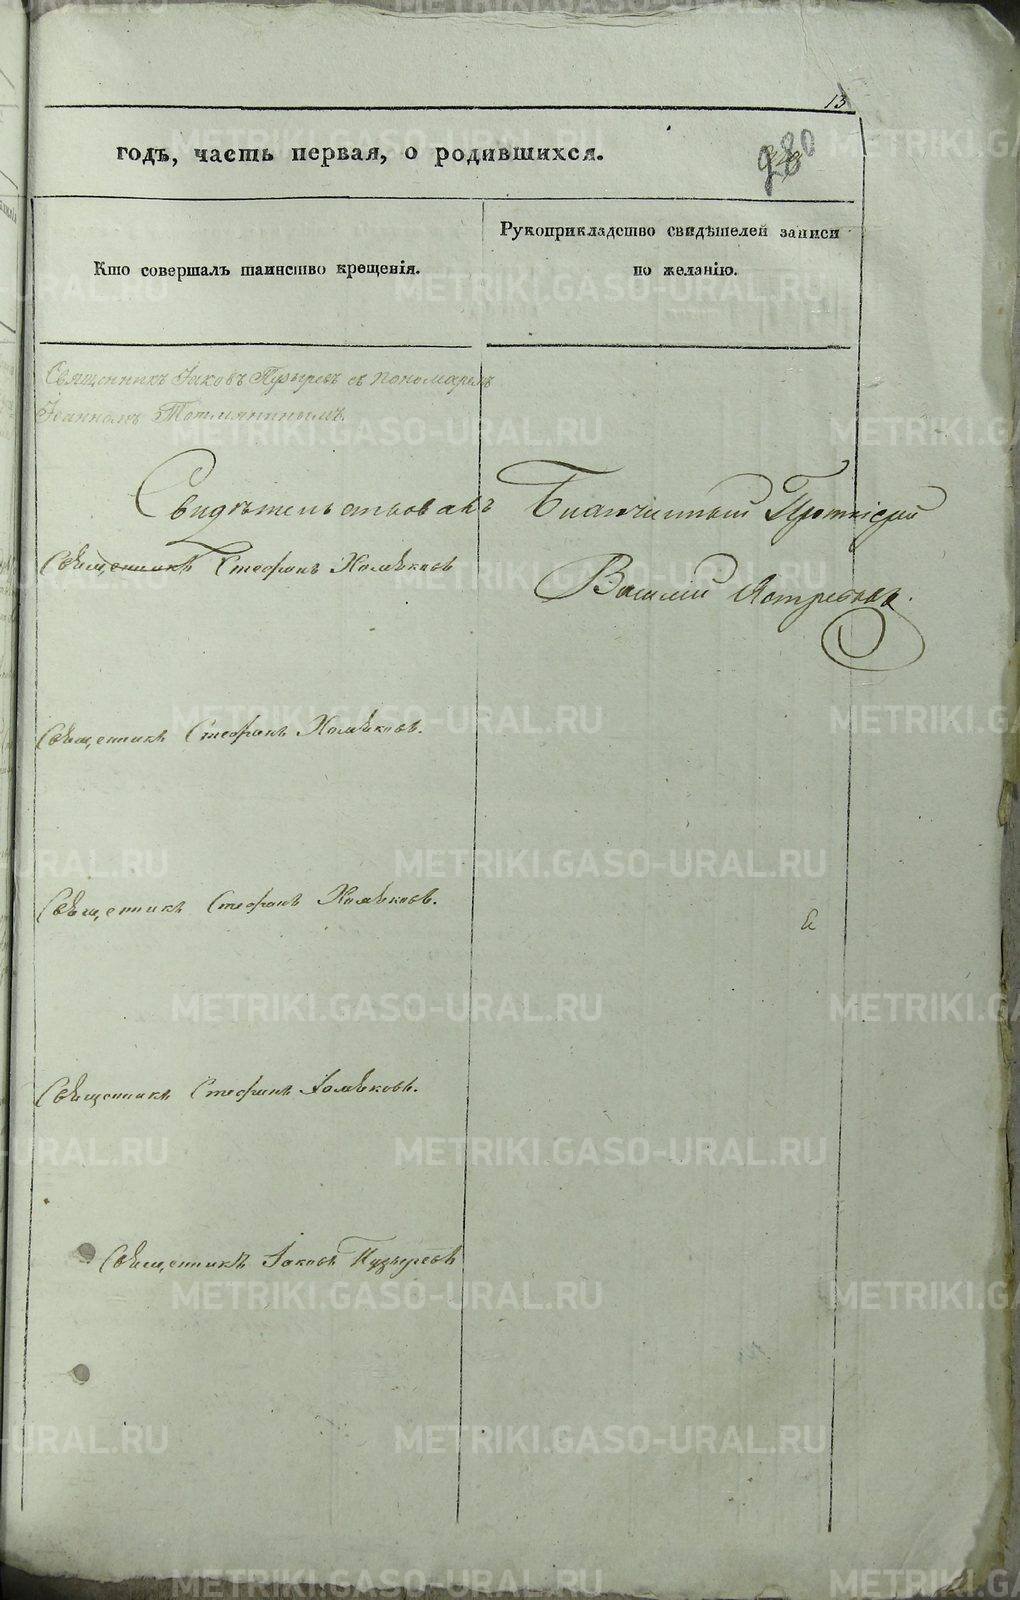 13
годъ, часть первая, о родившихся.
980
Кто совершалъ таинство крещенія.
Рукоприкладство свидѣтелей записи
по желанію.
Священникъ Іаковъ Пузыревъ съ пономаремъ
Іоанномъ Тотмянинымъ.
Свидѣтельствовалъ Благочинный Протоіерей
Василій Ястребовъ.
Священникъ Стефанъ Хомяковъ
Священникъ Стефанъ Хомяковъ.
Священникъ Стефанъ Хомяковъ.
Священникъ Стефанъ Хомяковъ.
Священникъ Іаковъ Пузыревъ
METRIKI.GASO-URAL.RU